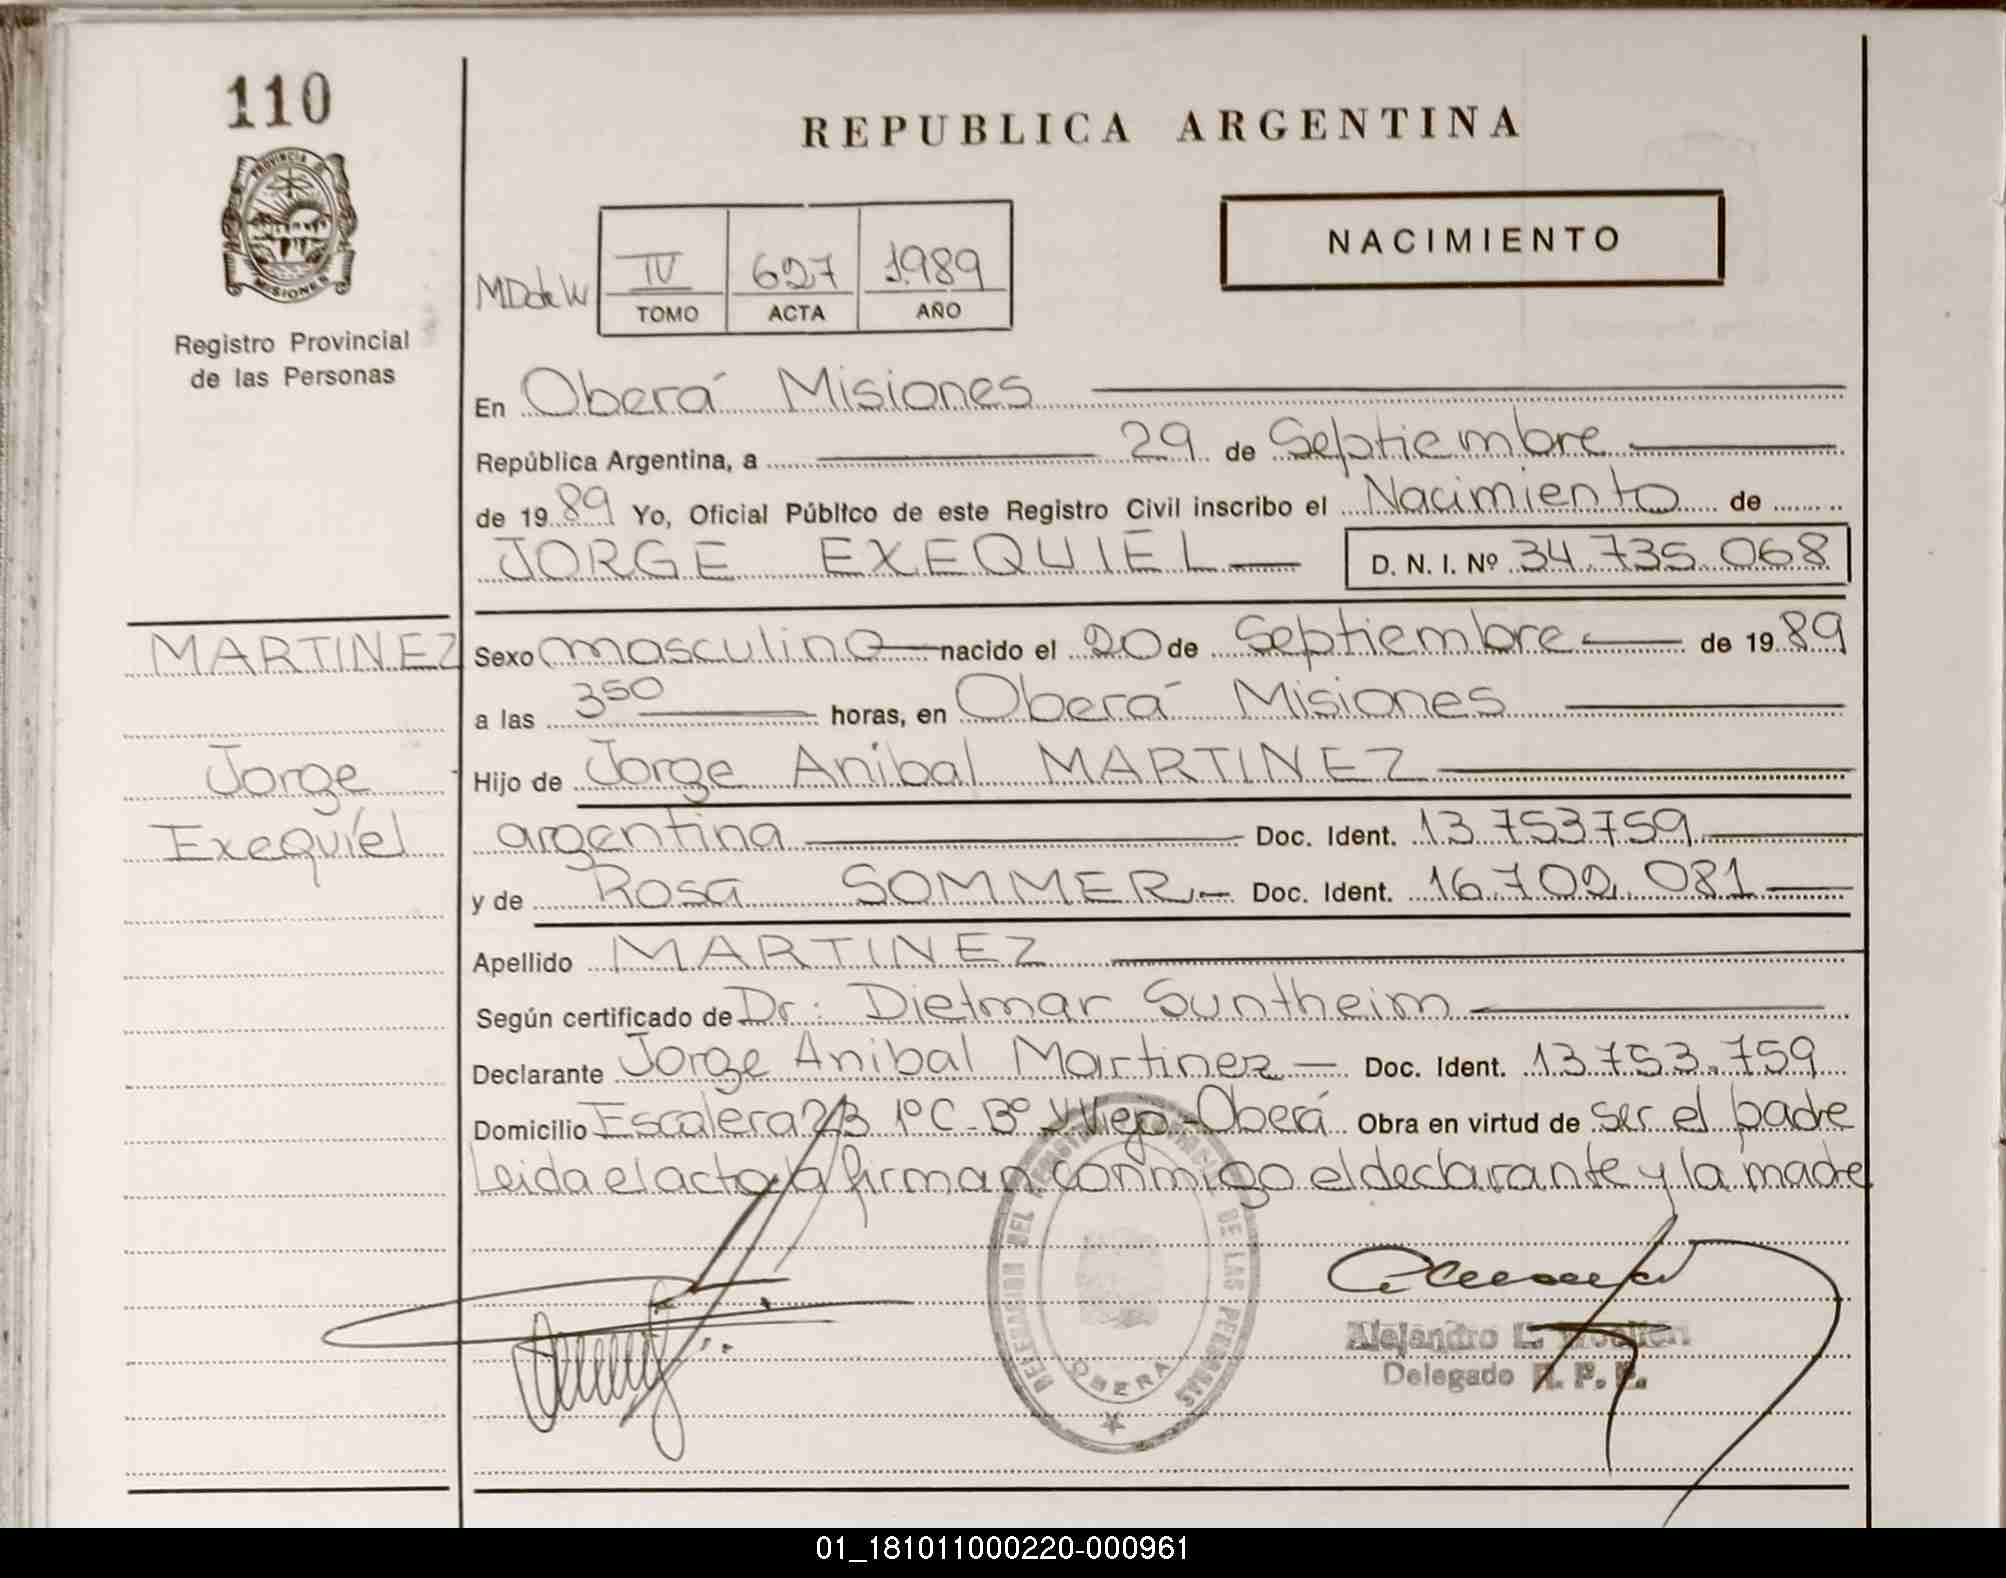 110
PROVINCIA DE
MISIONES
Registro Provincial
de las Personas
REPUBLICA ARGENTINA
NACIMIENTO
MD de W
IV 627 1989
TOMO ACTA AÑO
En Oberá Misiones
República Argentina, a 29 de Septiembre
de 1989 Yo, Oficial Público de este Registro Civil inscribo el Nacimiento de
JORGE EXEQUIEL D. N. I. Nº 34.735.068
MARTINEZ
Jorge
Exequiel
Sexo masculino nacido el 20 de Septiembre de 1989
a las 350 horas, en Oberá Misiones
Hijo de Jorge Anibal MARTINEZ
argentina Doc. Ident. 13.753759
y de Rosa SOMMER.- Doc. Ident. 16.702.081
Apellido MARTINEZ
Según certificado de Dr: Dietmar Suntheim
Declarante Jorge Anibal Martinez Doc. Ident. 13.753.759
Domicilio Escalera 23 1º C-Bº V Viejo-Oberá Obra en virtud de ser el padre
Leida el acta la firman conmigo el declarante y la madre
DELEGACION DEL REGISTRO PROVINCIAL DE LAS PERSONAS
OBERA
Alejandro L.
Delegado R. P. P.
01_181011000220-000961